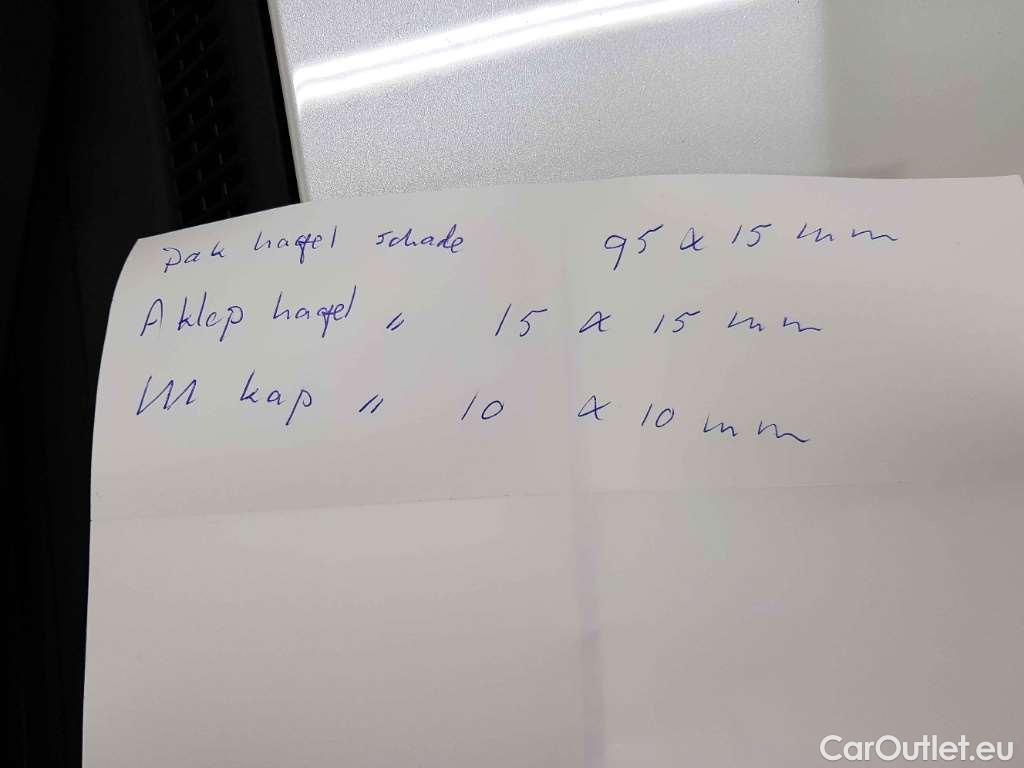 Dak hagel schade 95 x 15 mm
A klep hagel " 15 x 15 mm
M kap " 10 x 10 mm
CarOutlet.eu